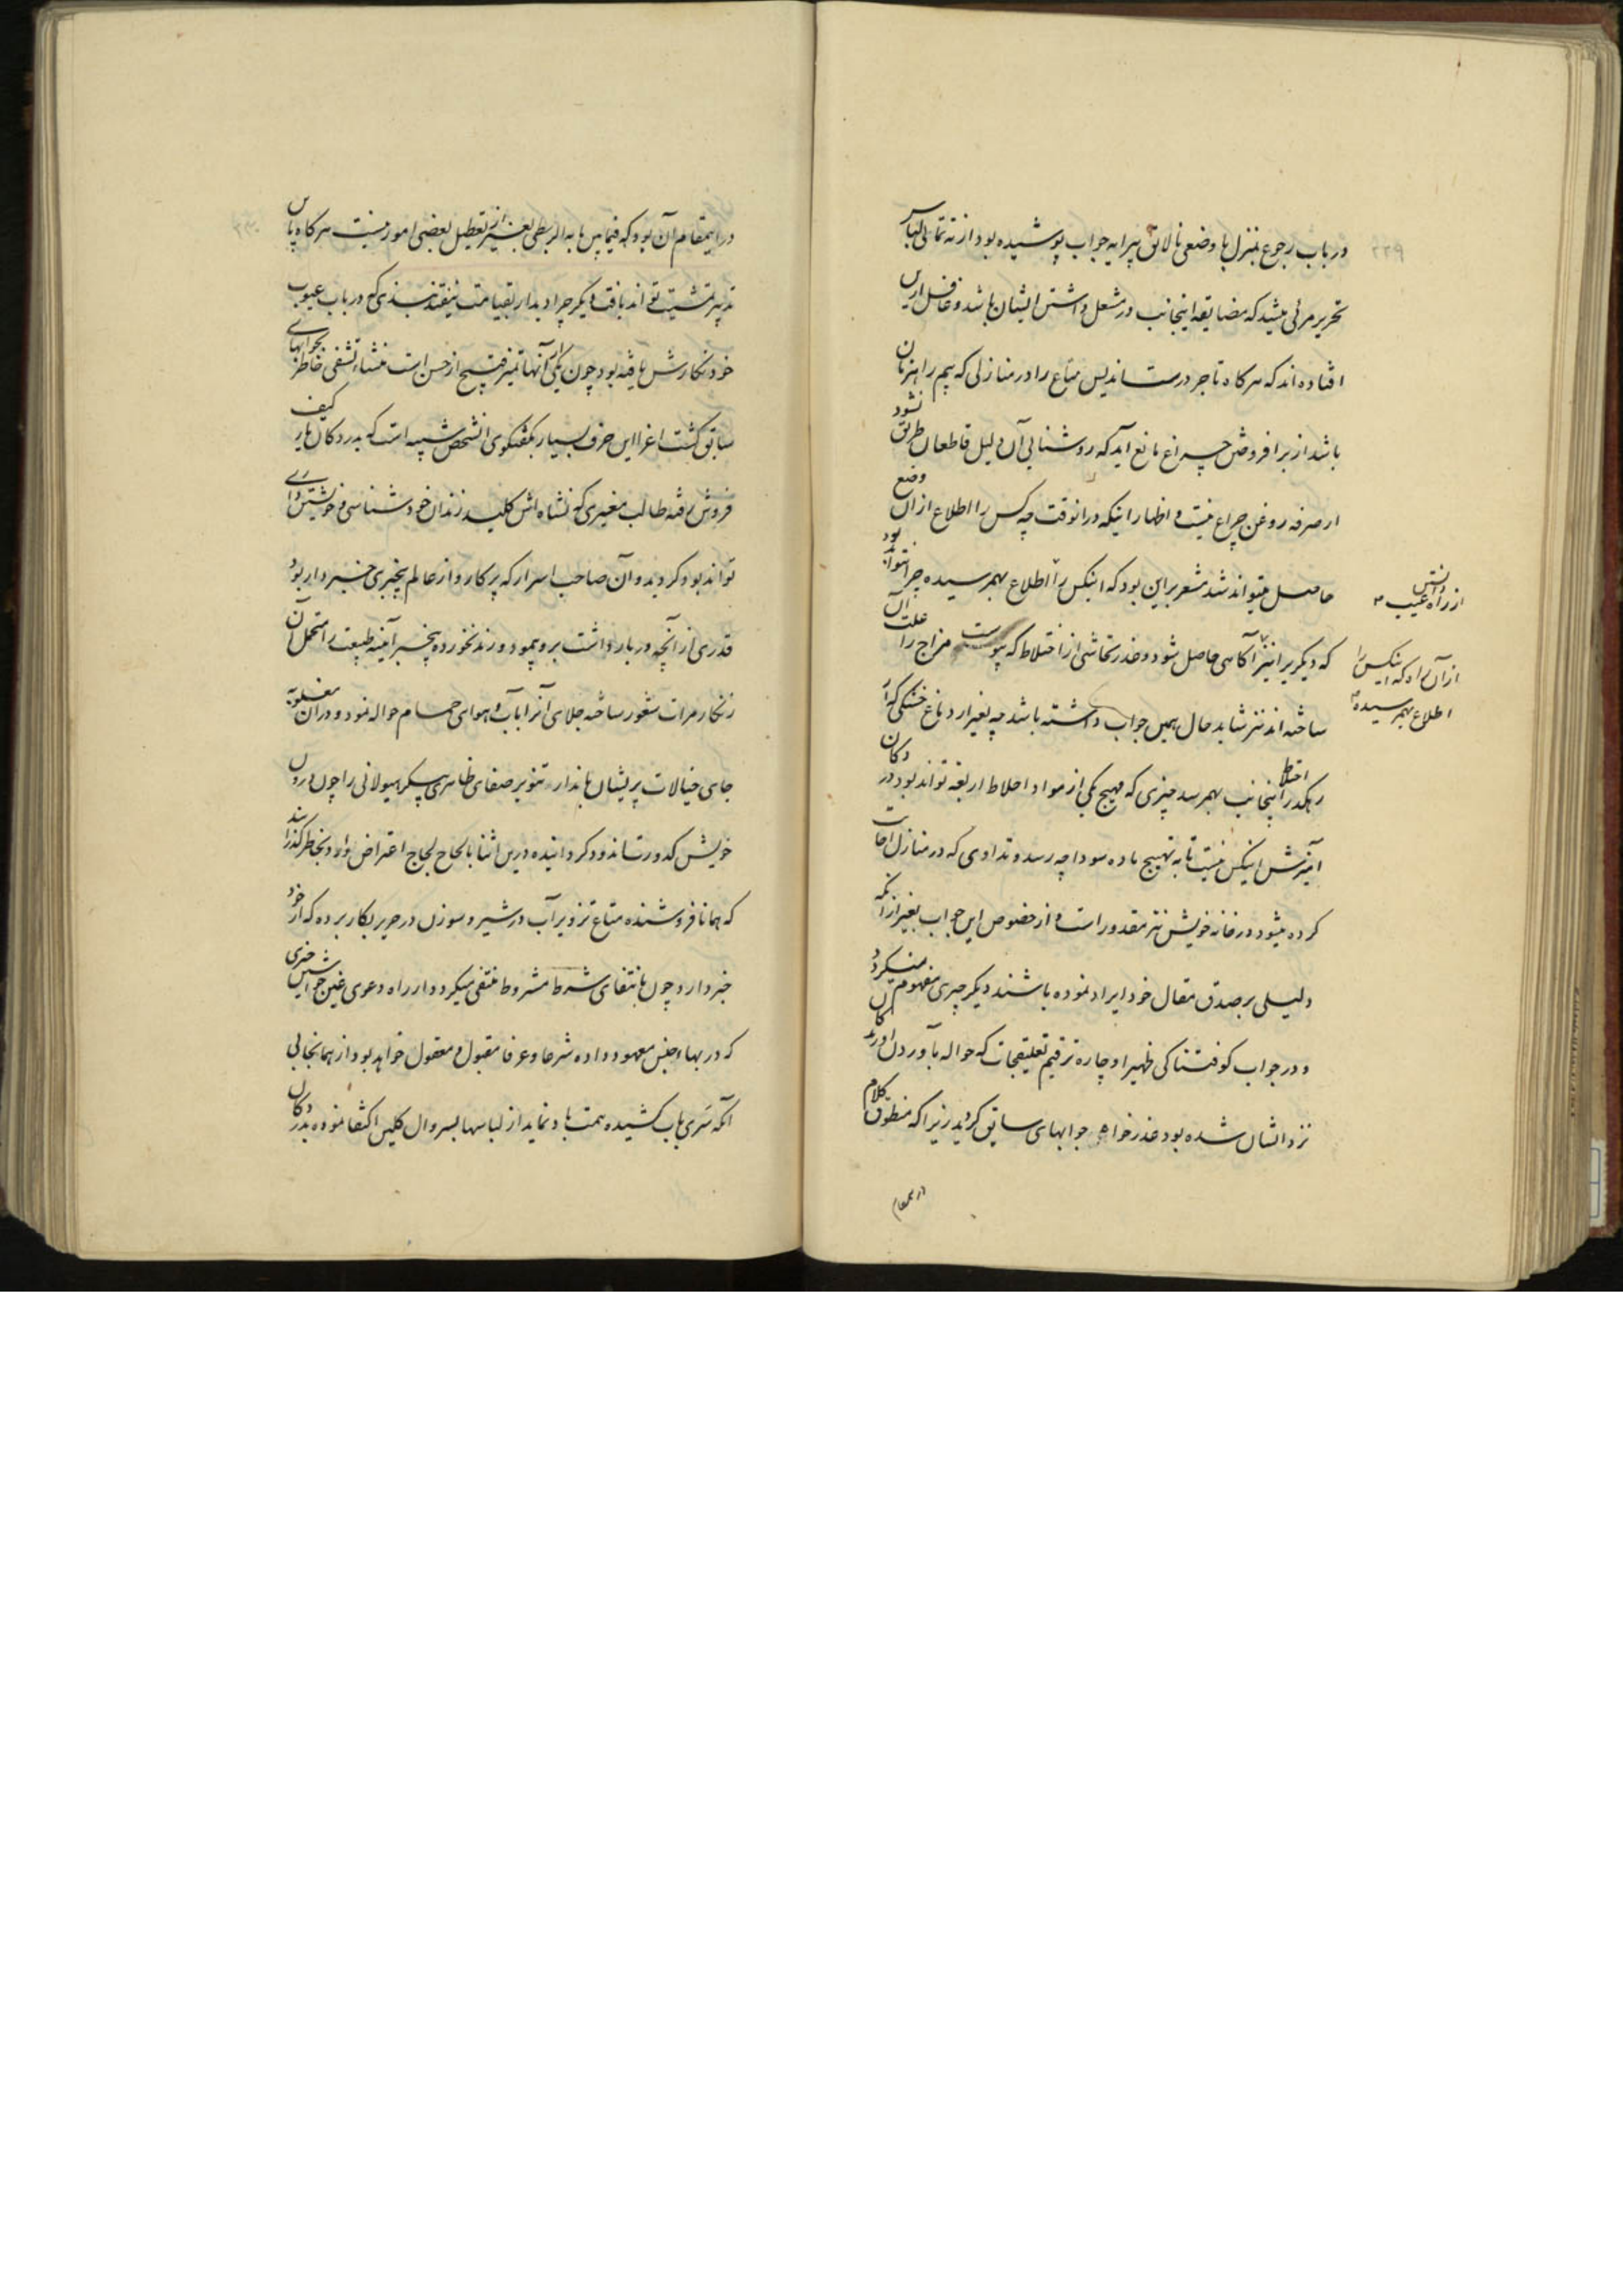 ۲۲۹
در باب رجوع بمنزل با وضعی نالایق پیرایه جواب پوشیده بود از ته تمامی لباس
تحریر مرئی میشد که مضایقه اینجانب در مشعل داشتن ایشان باشد و غافل ازین
افتاده اند که هر کاه تاجر درست اندیش متاع را در منازلی که بیم راهزنان
باشد از برافروختن چراغ مانع آید که روشنایی آن دلیل قاطعان طریق نشود
از صرفه روغن چراغ نیست و اظهار اینکه در آنوقت چه کس را اطلاع از آن وضع
حاصل میتواند شد مشعر براین بود که اینکس را اطلاع بهم رسیده چرا نتواند بود
که دیگریرا نیز آگاهی حاصل شود و عذر تحاشی از اختلاط که یبوست مزاج را علت آن
ساخته اند نیز شاید حال همین جواب داشته باشد چه بغیر از دماغ خشکی که از
رهگذر اختلاط اینجانب بهم رسد چیزی که مهیج یکی از مواد اخلاط اربعه تواند بود در دکان
آمیزش اینکس نیست تا به تهییج ماده سودا چه رسد و تداوی که در منازل
کرده میشود در خانه خویش نیز مقدور است و از خصوص این جواب بغیر از آنکه
دلیلی بر صدق مقال خود ایراد نموده باشند دیگر چیزی مفهوم نمیگردد
و در جواب کوفتناکی ظهیرا و چاره ترقیم تعلیقجات که حواله بآوردن
نزد ایشان شده بود عذر خواه جوابهای سابق کردید زیرا که منطوق کلام
در اینمقام
از راه دانستن عیب
از آن راه که اینکس را
اطلاع بهم رسیده
در اینمقام آن بود که فیمابین ما به الربطی بغیر از تعطیل بعضی امور نیست هر کاه باین
تدبیر تمشیت تواند یافت دیگر چرا دیدار بقیامت نیفتد بندی که در باب عیوب
خود نگارش یافته بود چون یکی از آنها تمیز قبیح از حسن است منشاء تشفی خاطر بجوابهای
سابق گشت اغرا این حرف بسیار بگفتگوی آنشخص شبیه است که بدر دکان کیف
فروش رفته طالب مغیری که نشاه اش کلید زندان خود شناسی و خویشتن
تواند بود کردید و آن صاحب اسرار که پرکار و از عالم بیخبری خبردار بود
قدری از آنچه در بار داشت برو پیمود و رند نخورده بیخبر آینه طبیعت را متحمل آن
زنگار مرات شعور ساخته جلای آنرا بآب و هوای حمام حواله نمود و در آن
جای خیالات پریشان پندار تنویر صفای ظاهری پیکر هیولانی را چون درون
خویش کدورت اندود کردانیده درین اثنا بالحاح لجاج اعتراض بخاطر گذرانید
که همانا فروشنده متاع تزویر آب در شیر و سوزن در حریر بکار برده که از خود
خبر دارد چون بانتفای شرط مشروط منتفی میکردد از راه دعوی غبن چیزی
که در بهاء جنس معهود داده شرعا و عرفا مقبول و معقول خواهد بود از همانجا بی
آنکه سری بآب کشیده همت باد نماید از لباسها بسروال کلیس اکتفا نموده بدر دکان